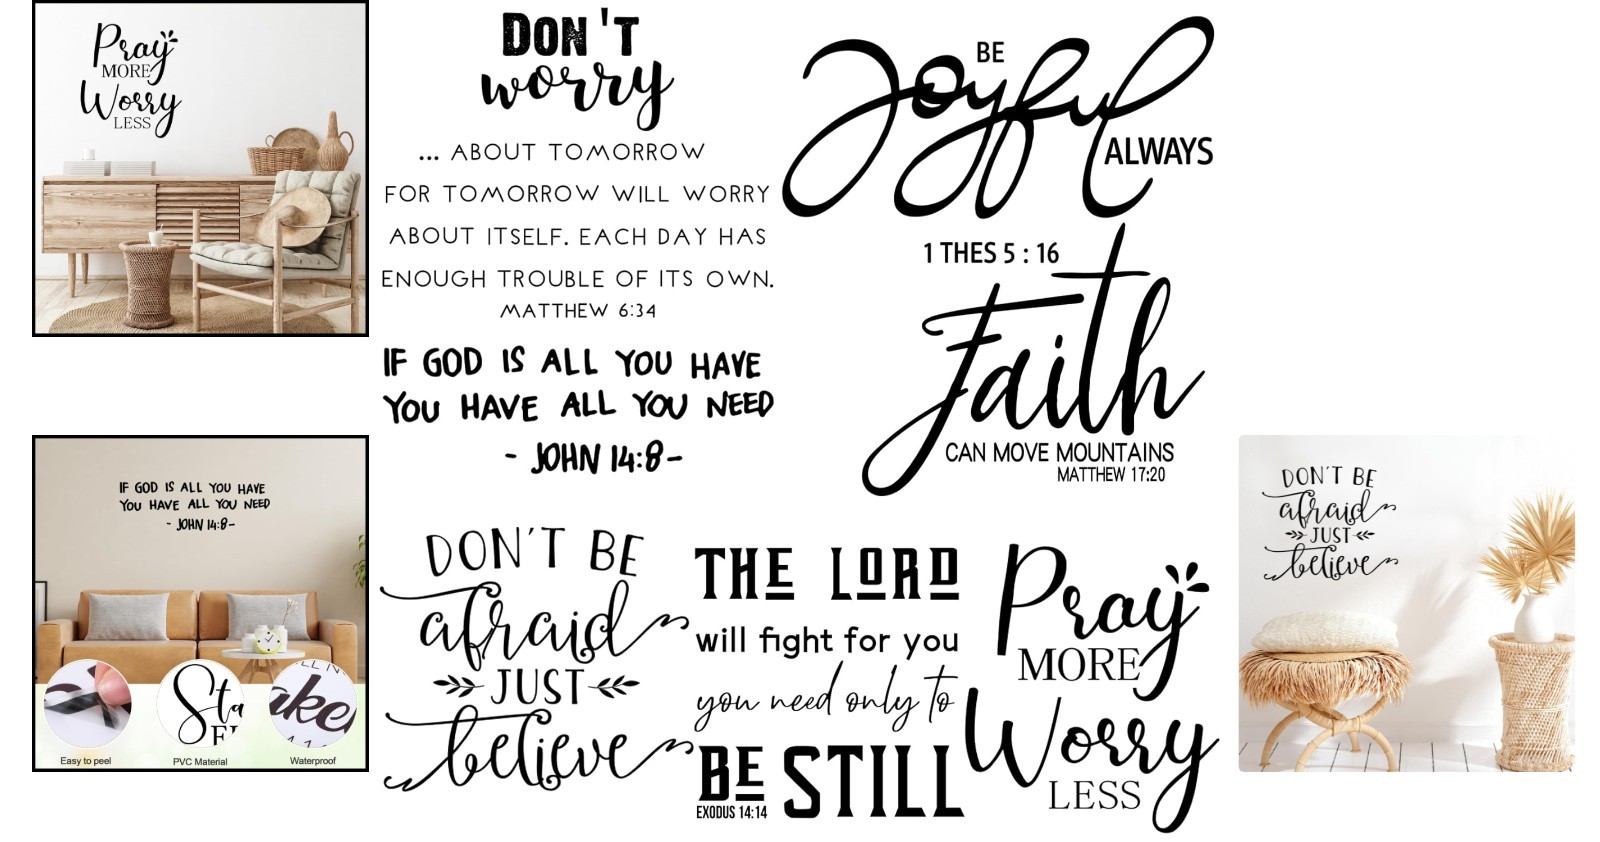 Pray
MORE
Worry
LESS
DON'T
worry
... ABOUT TOMORROW
FOR TOMORROW WILL WORRY
ABOUT ITSELF. EACH DAY HAS
ENOUGH TROUBLE OF ITS OWN.
MATTHEW 6:34
BE
Joyful
ALWAYS
1 THES 5 : 16
IF GOD IS ALL YOU HAVE
YOU HAVE ALL YOU NEED
- JOHN 14:8-
Faith
CAN MOVE MOUNTAINS
MATTHEW 17:20
IF GOD IS ALL YOU HAVE
YOU HAVE ALL YOU NEED
- JOHN 14:8-
Easy to peel
PVC Material
Waterproof
DON'T BE
afraid
JUST
believe
THE LORD
will fight for you
you need only to
BE STILL
EXODUS 14:14
Pray
MORE
Worry
LESS
DON'T BE
afraid
JUST
believe